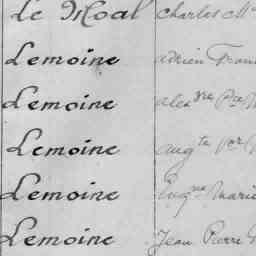 Le Moal Charles M
Lemoine Adrien Fran
Lemoine Alex dre Pre
Lemoine Aug te Pr
Lemoine Eug ne Marie
Lemoine Jean Pierre